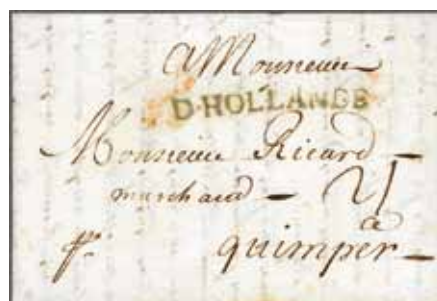 A Monsieur
D·HOLLANDE
Monsieur Ricard
marchand 21
à
quimper